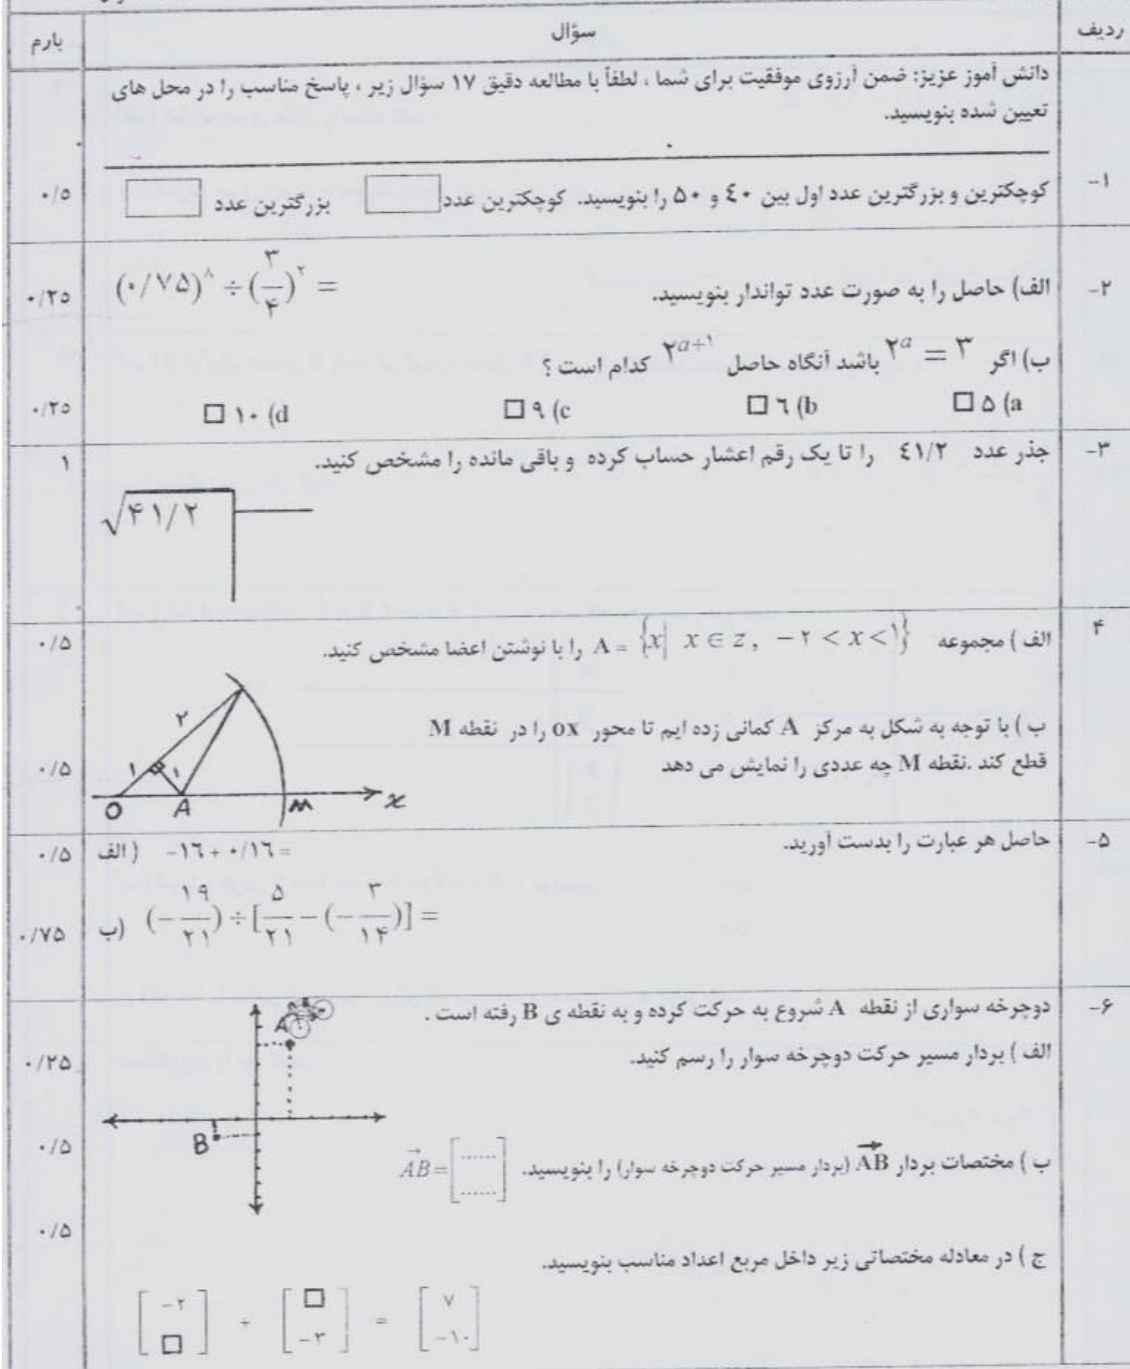 ردیف سؤال بارم
دانش آموز عزیز: ضمن آرزوی موفقیت برای شما ، لطفاً با مطالعه دقیق ۱۷ سؤال زیر ، پاسخ مناسب را در محل های
تعیین شده بنویسید.
۱- کوچکترین و بزرگترین عدد اول بین ٤٠ و ٥٠ را بنویسید. کوچکترین عدد □ بزرگترین عدد □ ۰/۵
۲- الف) حاصل را به صورت عدد تواندار بنویسید. (۰/۷۵)^۸ ÷ (۳/۴)^۲ = ۰/۲۵
ب) اگر ۲^a = ۳ باشد آنگاه حاصل ۲^{a+۱} کدام است ؟
a) ۵ □ b) ٦ □ c) ۹ □ d) ۱۰ □ ۰/۲۵
۳- جذر عدد ٤۱/۲ را تا یک رقم اعشار حساب کرده و باقی مانده را مشخص کنید. ۱
√۴۱/۲
۴ الف ) مجموعه A = {x| x ∈ z , -۲ < x < ۱} را با نوشتن اعضا مشخص کنید. ۰/۵
ب ) با توجه به شکل به مرکز A کمانی زده ایم تا محور ox را در نقطه M
قطع کند .نقطه M چه عددی را نمایش می دهد ۰/۵
۲
۱ ۱
O A M x
۵- حاصل هر عبارت را بدست آورید.
الف ) -۱٦ + ۰/۱٦ = ۰/۵
ب) (-۱۹/۲۱) ÷ [۵/۲۱ - (-۳/۱۴)] = ۰/۷۵
۶- دوچرخه سواری از نقطه A شروع به حرکت کرده و به نقطه ی B رفته است .
الف ) بردار مسیر حرکت دوچرخه سوار را رسم کنید. ۰/۲۵
A
B
ب ) مختصات بردار AB (بردار مسیر حرکت دوچرخه سوار) را بنویسید. AB = [...... ......] ۰/۵
ج ) در معادله مختصاتی زیر داخل مربع اعداد مناسب بنویسید. ۰/۵
[-۲ □] + [□ -۳] = [۷ -۱۰]